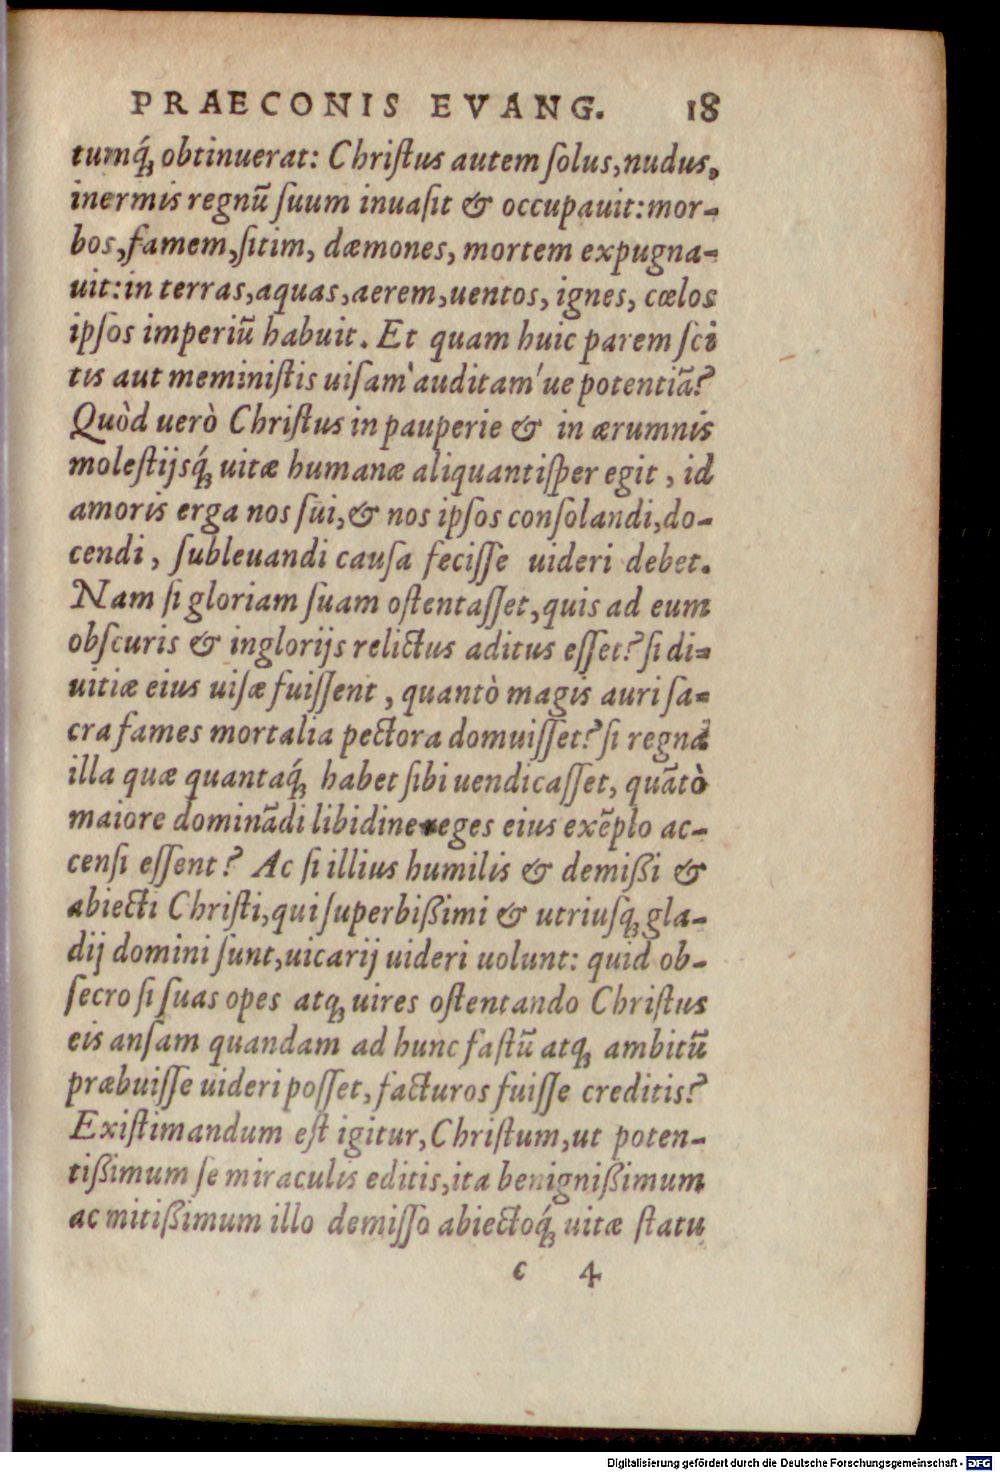 PRAECONIS EVANG. 18
tumq́ꝫ obtinuerat: Chriſtus autem ſolus, nudus,
inermis regnũ ſuum inuaſit & occupauit: mor-
bos, famem, ſitim, dæmones, mortem expugna-
uit: in terras, aquas, aerem, uentos, ignes, cœlos
ipſos imperiũ habuit. Et quam huic parem ſci
tis aut meminiſtis uiſam' auditam'ue potentiã?
Quòd uerò Chriſtus in pauperie & in ærumnis
moleſtijsq́ꝫ uitæ humanæ aliquantiſper egit, id
amoris erga nos ſui, & nos ipſos conſolandi, do-
cendi, ſubleuandi cauſa feciſſe uideri debet.
Nam ſi gloriam ſuam oſtentaſſet, quis ad eum
obſcuris & inglorijs relictus aditus eſſet? ſi di-
uitiæ eius uiſæ fuiſſent, quantò magis auri ſa-
cra fames mortalia pectora domuiſſet? ſi regna
illa quæ quantaq́ꝫ habet ſibi uendicaſſet, quãtò
maiore dominãdi libidine reges eius exẽplo ac-
cenſi eſſent? Ac ſi illius humilis & demißi &
abiecti Chriſti, qui ſuperbißimi & utriuſqꝫ gla-
dij domini ſunt, uicarij uideri uolunt: quid ob-
ſecro ſi ſuas opes atqꝫ uires oſtentando Chriſtus
eis anſam quandam ad hunc faſtũ atqꝫ ambitũ
præbuiſſe uideri poſſet, facturos fuiſſe creditis?
Exiſtimandum eſt igitur, Chriſtum, ut poten-
tißimum ſe miraculis editis, ita benignißimum
ac mitißimum illo demiſſo abiectoq́ꝫ uitæ ſtatu
c 4
Digitalisierung gefördert durch die Deutsche Forschungsgemeinschaft - DFG